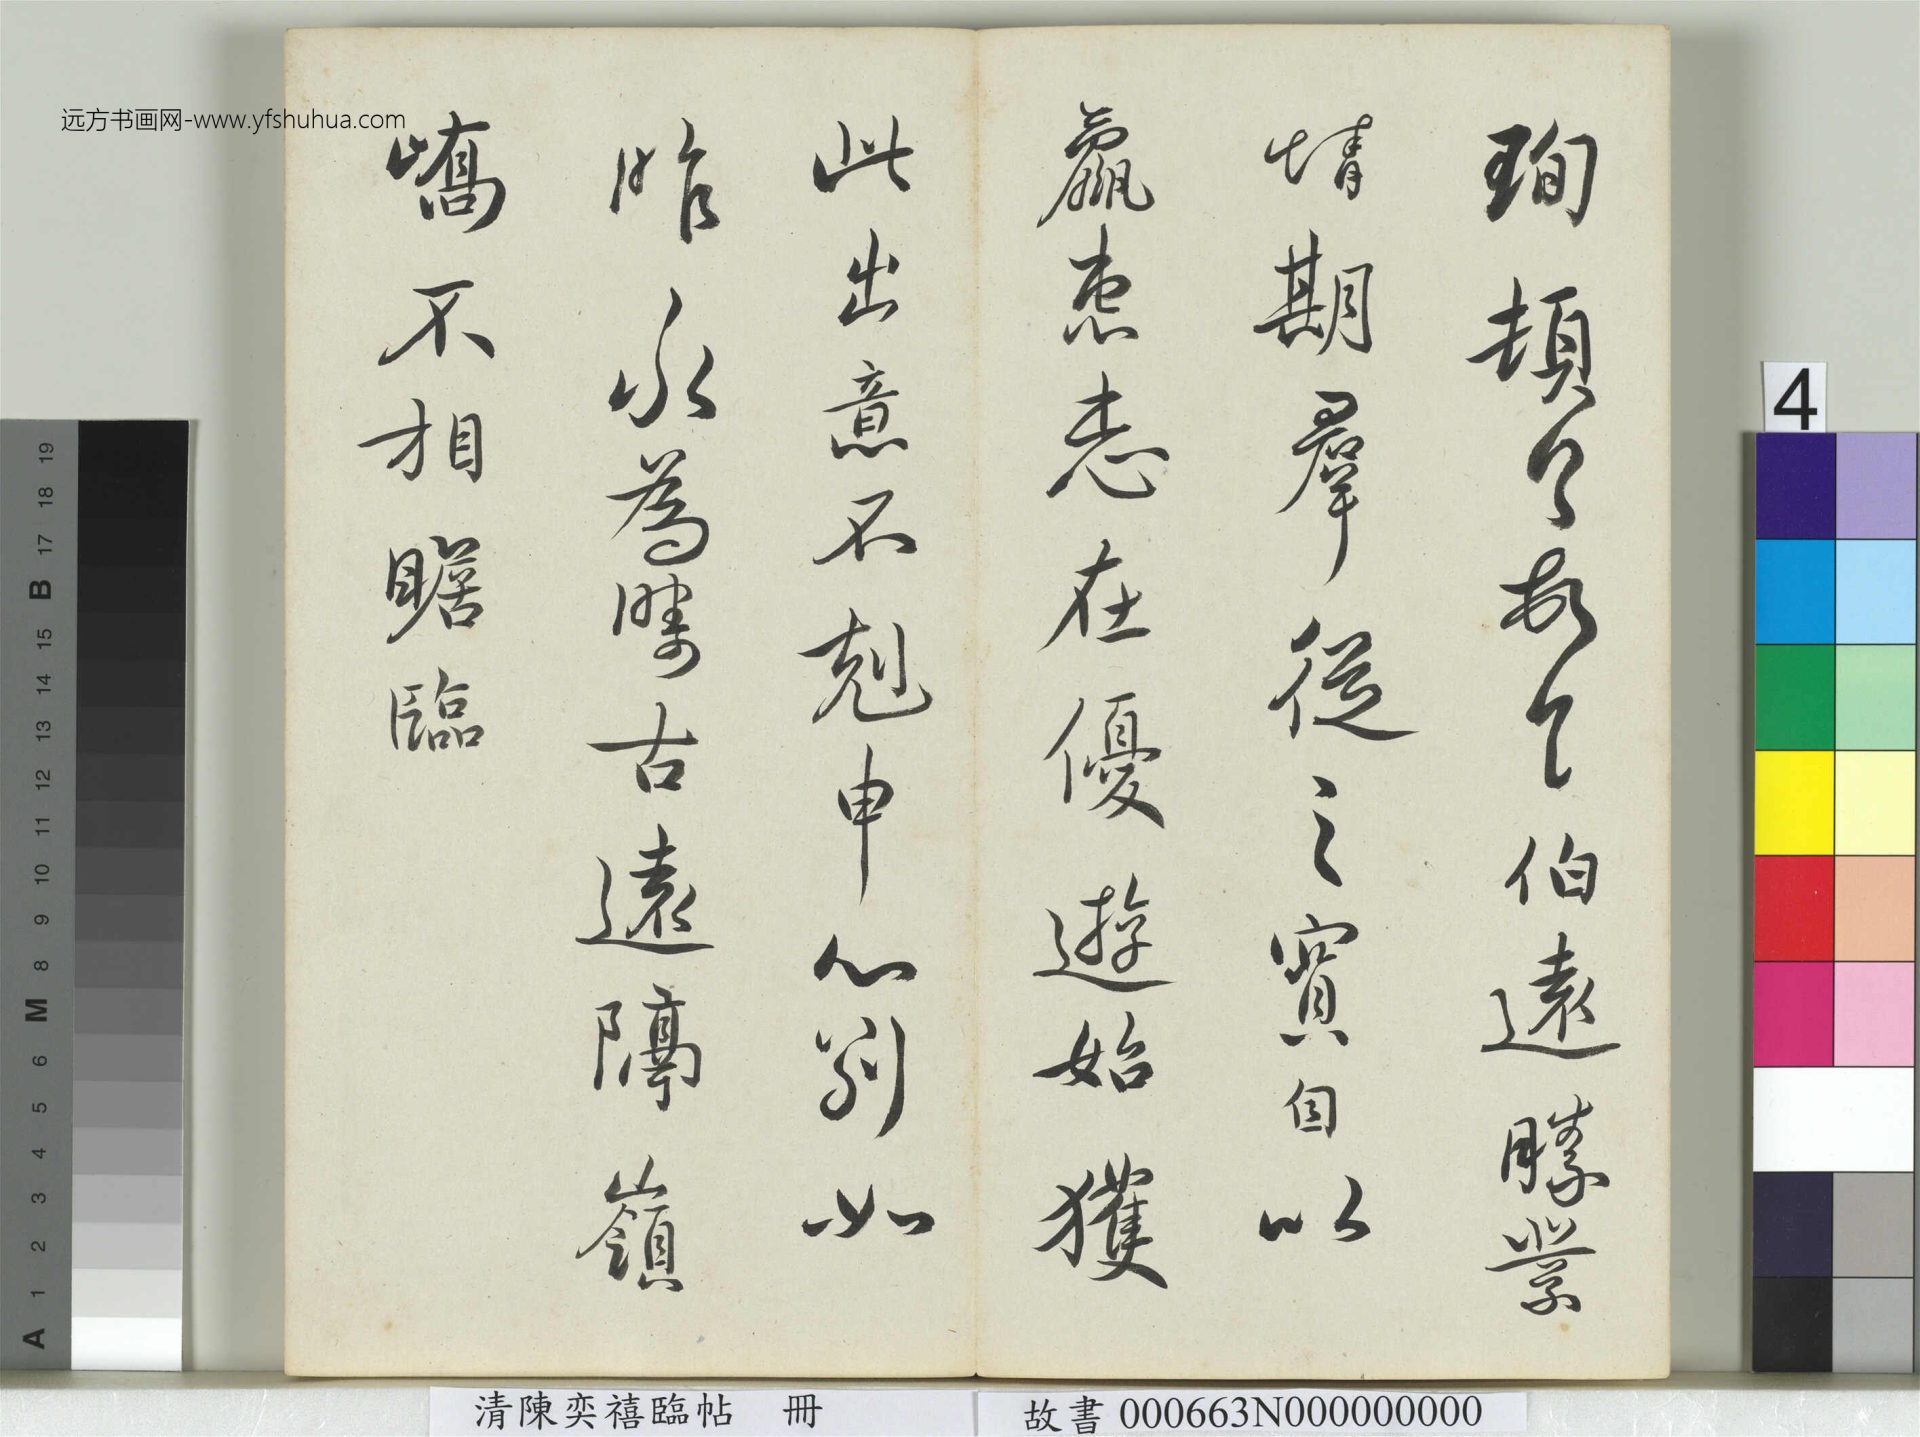 珣頓首頓首伯遠勝業
情期羣從之寶自以
羸患志在優遊始獲
此出意不剋申分別如
昨永為疇古遠隔嶺
嶠不相瞻臨
远方书画网-www.yfshuhua.com
清陳奕禧臨帖 冊
故書000663N000000000
4
A 1 2 3 4 5 6 M 8 9 10 11 12 13 14 15 B 17 18 19